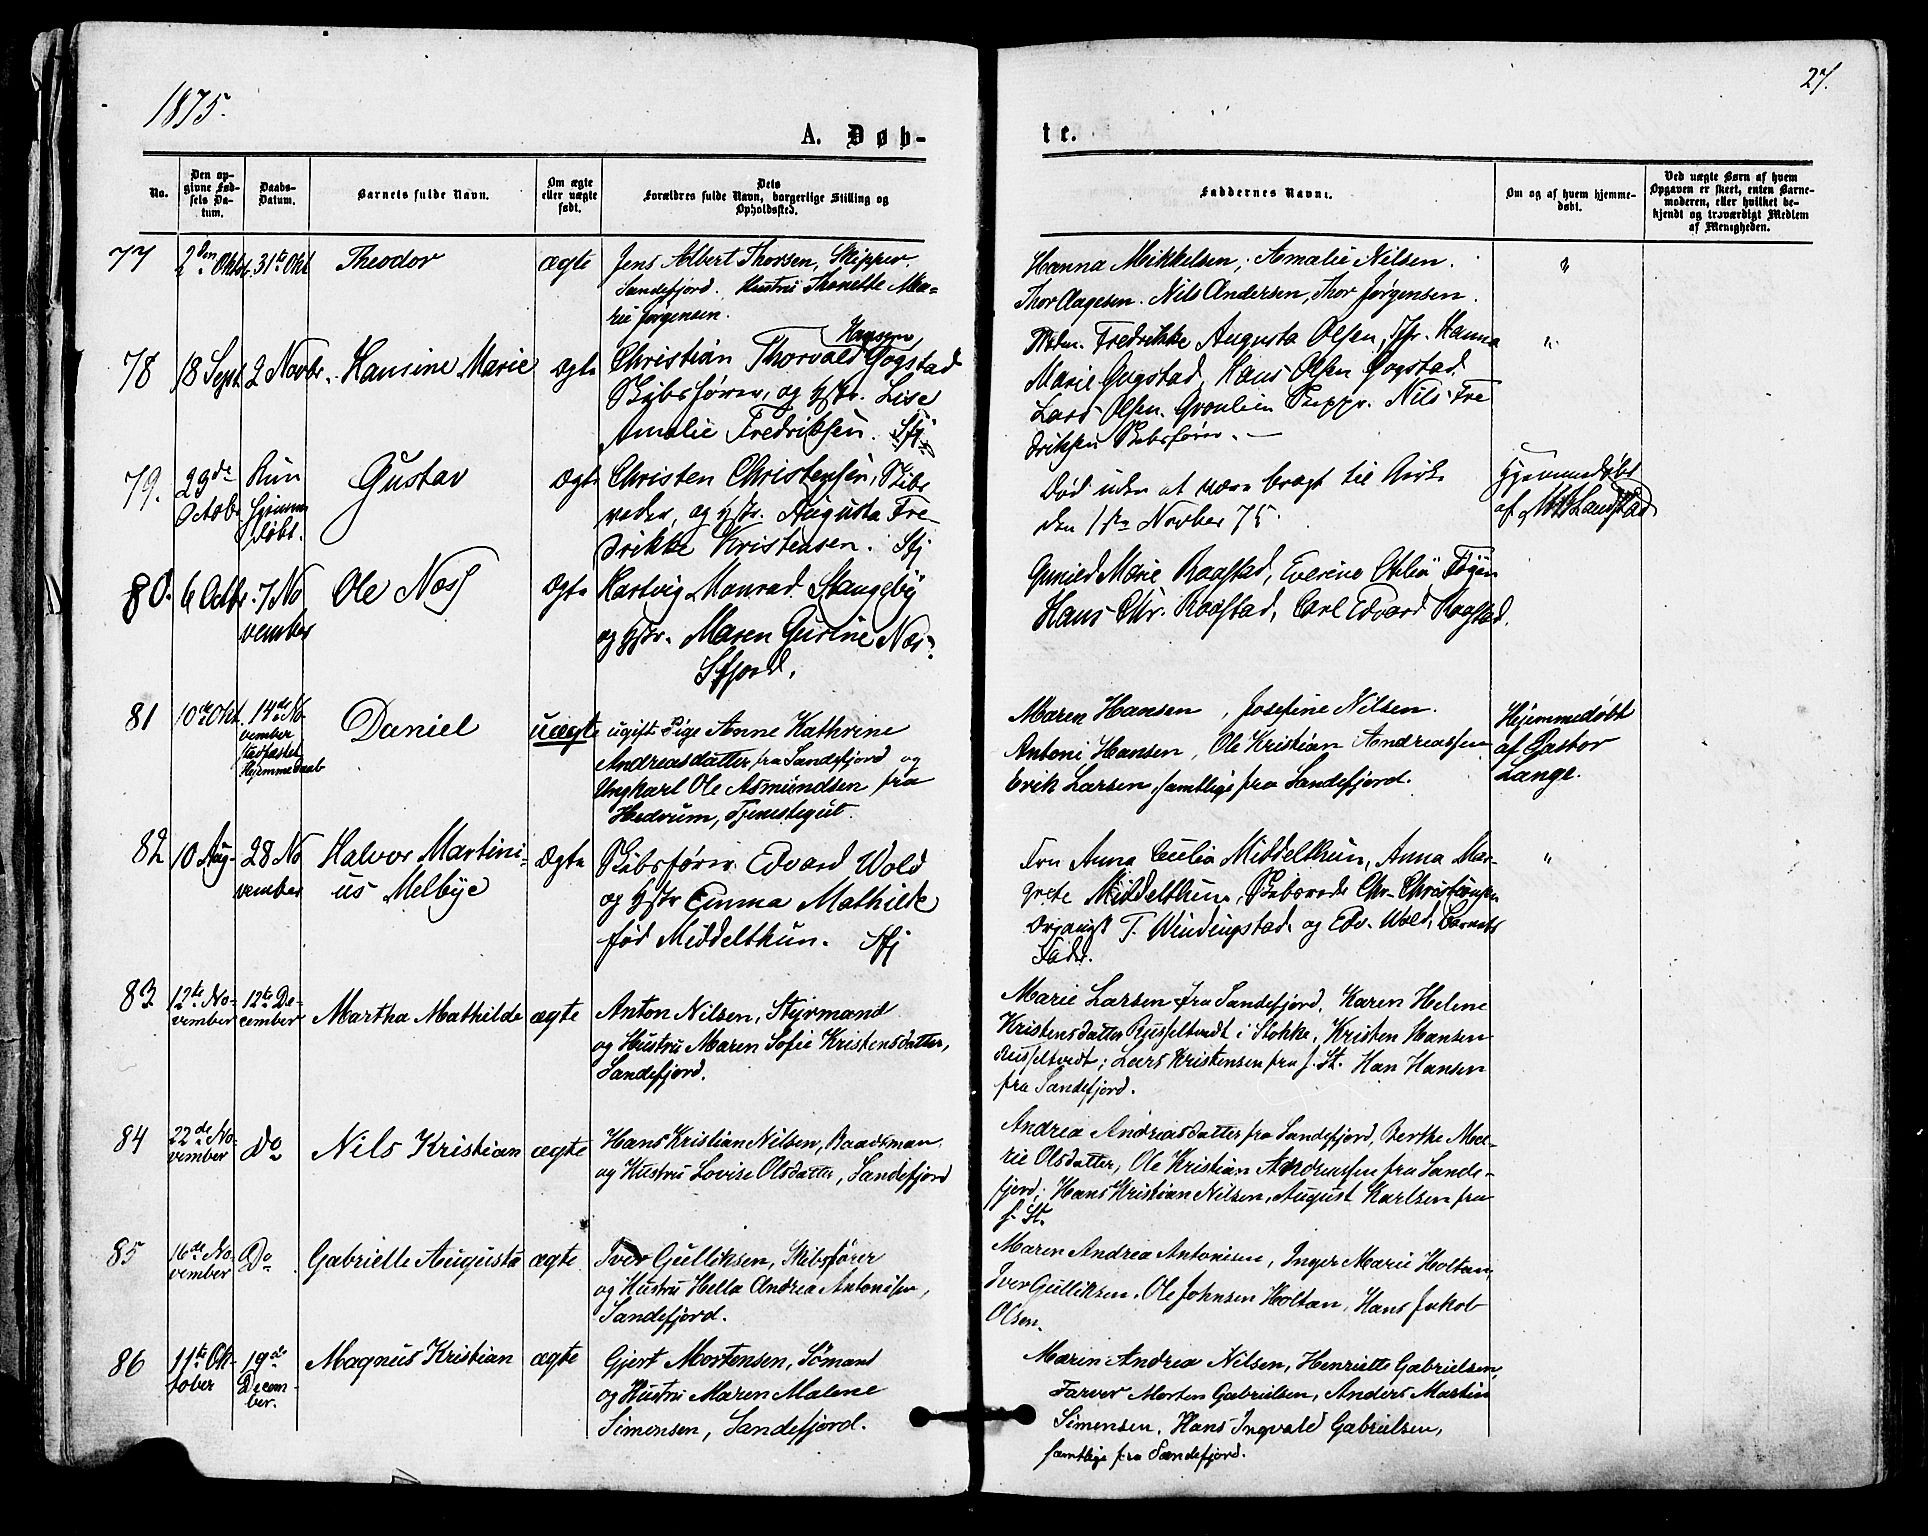 1875.
27.
A. Døb-
te.
No.
Den op-
givne Fød-
sels Da-
tum.
Daabs-
Datum.
Barnets fulde Navn.
Om ægte
eller uægte
født.
Dets
Forældres fulde Navn, borgerlige Stilling og
Opholdssted.
Faddernes Navne.
Om og af hvem hjemme-
døbt.
Ved uægte Børn af hvem
Opgaven er skeet, enten Barne-
moderen, eller hvilket be-
kjendt og troværdigt Medlem
af Menigheden.
77
2den Oktbr.
31te Okt
Theodor
ægte
Jens Albert Thorsen, Skipper.
Sandefjord. Hustru Thonette Ma-
rie Jørgensen.
Hanna Mikkelsen, Amalie Nilsen.
Thor Aagesen. Nils Andersen, Thor Jørgensen.
"
78
18 Sept.
2 Novbr.
Hansine Marie
Ægte
Hansen
Christian Thorvald Gogstad
Skibsfører, og Hstr. Lise
Amalie Fredriksen. Sfj
Fredrikke Augusta Olsen, Hanna
Marie Gogstad, Hans Olsen Gogstad
Lars Olsen. Skippr. Nils Fre
driksen Skibsfører. —
"
79.
29de
Octob
Kun
hjemme
døbt.
Gustav
Ægte
Christen Christensen, Skibs
reder, og Hstr. Augusta Fre-
drikke Kristensen. Sfj
Død uden at være bragt til Kirke
den 1ste Novber 75.
Hjemmedøbt
af M B Landstad
80.
6 Octbr.
7 No
vember
Ole Næss
Ægte
Hartvig Monrad Stangeby
og Hstr. Maren Gurine Næs.
Sfjord.
Gunild Marie Raastad, Everine Othilie
Hans Chr. Raastad, Carl Edvard Raastad.
81
10de Okt.
14de No
vember
stadfæstet
Hjemmedaab
Daniel
uægte
ugift Pige Anne Kathrine
Andreasdatter fra Sandefjord og
Ungkarl Ole Asmundsen fra
Hedrum, Tjenestegut.
Maren Hansen, Josefine Nilsen.
Antoni Hansen, Ole Kristian Andreassen
Erik Larsen, samtlige fra Sandefjord.
Hjemmedøbt
af Pastor
Lange.
82
10 Aug-
28 No
vember
Halvor Martini-
us Melbye
Ægte
Skibsfører Edvard Wold
og Hstr Emma Mathilde
fød Middelthun. Sfj
Fru Anna Cecilia Middelthun, Anna Mar-
grete Middelthun, Skibsreder Chr. Christensen
T. Windingstad og Edv. Wold, Barnets
Fader.
"
83
12te No-
vember
12te De-
cember
Martha Mathilde
ægte
Anton Nilsen, Styrmand
og Hustru Maren Sofie Kristensdatter,
Sandefjord.
Marie Larsen fra Sandefjord, Karen Helene
Kristensdatter Russeltvedt i Stokke, Kristen Hansen
Russeltvedt; Lars Kristensen fra s. St. Han Hansen
fra Sandefjord.
84
22de No-
vember
Do
Nils Kristian
ægte
Hans Kristian Nilsen, Baadsman
og Hustru Lovise Olsdatter, Sandefjord
Andrea Andreasdatter fra Sandefjord, Berthe Ma-
rie Olsdatter, Ole Kristian Andreassen fra Sande-
fjord; Hans Kristian Nilsen, August Karlsen fra
s. St.
85
16de No-
vember
Do
Gabrielle Augusta
ægte
Iver Gulliksen, Skibsfører
og Hustru Hella Andrea Antonisen,
Sandefjord.
Maren Andrea Antonisen, Inger Marie Holtan,
Iver Gulliksen, Ole Johnsen Holtan, Hans Jakob
Olsen.
86
11te Ok-
tober
19de
Decem-
ber.
Magnus Kristian
ægte
Gjert Mortensen, Sømand
og Hustru Maren Malene
Simensen, Sandefjord.
Maren Andrea Nilsen, Henriette Gabrielsen,
Farver Morten Gabrielsen, Anders Martin
Simensen, Hans Ingvald Gabrielsen,
samtlige fra Sandefjord.